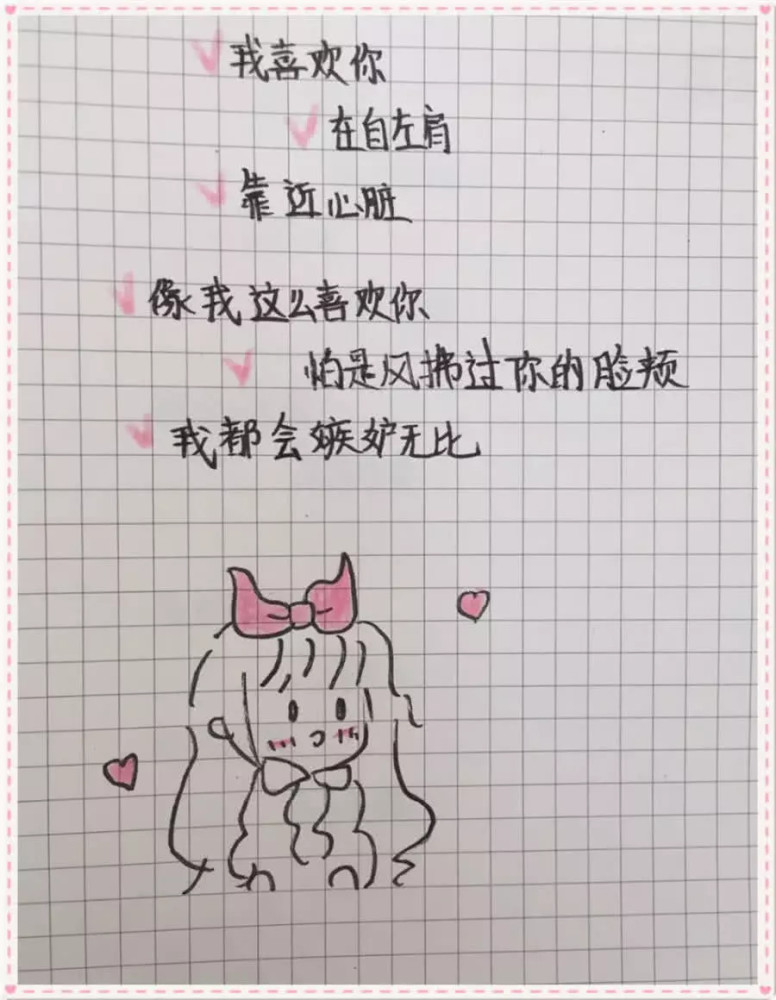 我喜欢你
在自左肩
靠近心脏
像我这么喜欢你
怕是风拂过你的脸颊
我都会嫉妒无比